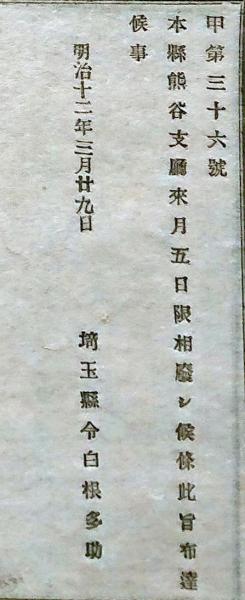 甲第三十六號
本縣熊谷支廳來月五日限相廢シ候條此旨布達
候事
明治十二年三月廿九日
埼玉縣令白根多助